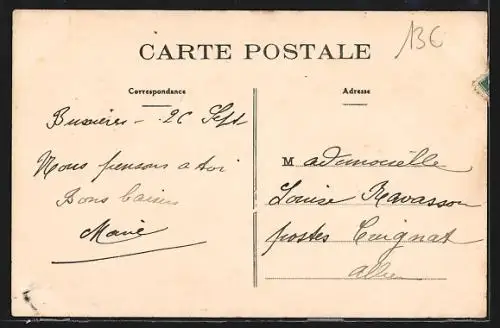 136
CARTE POSTALE
Correspondance
Adresse
Buxières - 26 Sept
Nous pensons a toi
Bons baisers
Marie
Mademoiselle
Louise Ravasson
postes Quignat
Allier